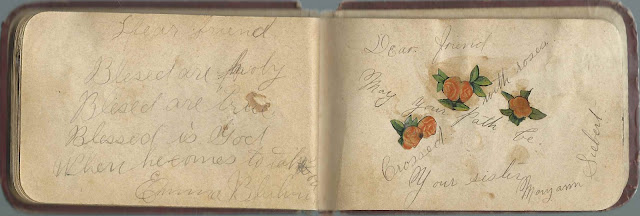 Dear friend
Blesed are
Blesed are true
Blessed is God
When he comes to
Emma
Dear friend
May your Path be
Crossed with roses
Your sister Maryann Siebert